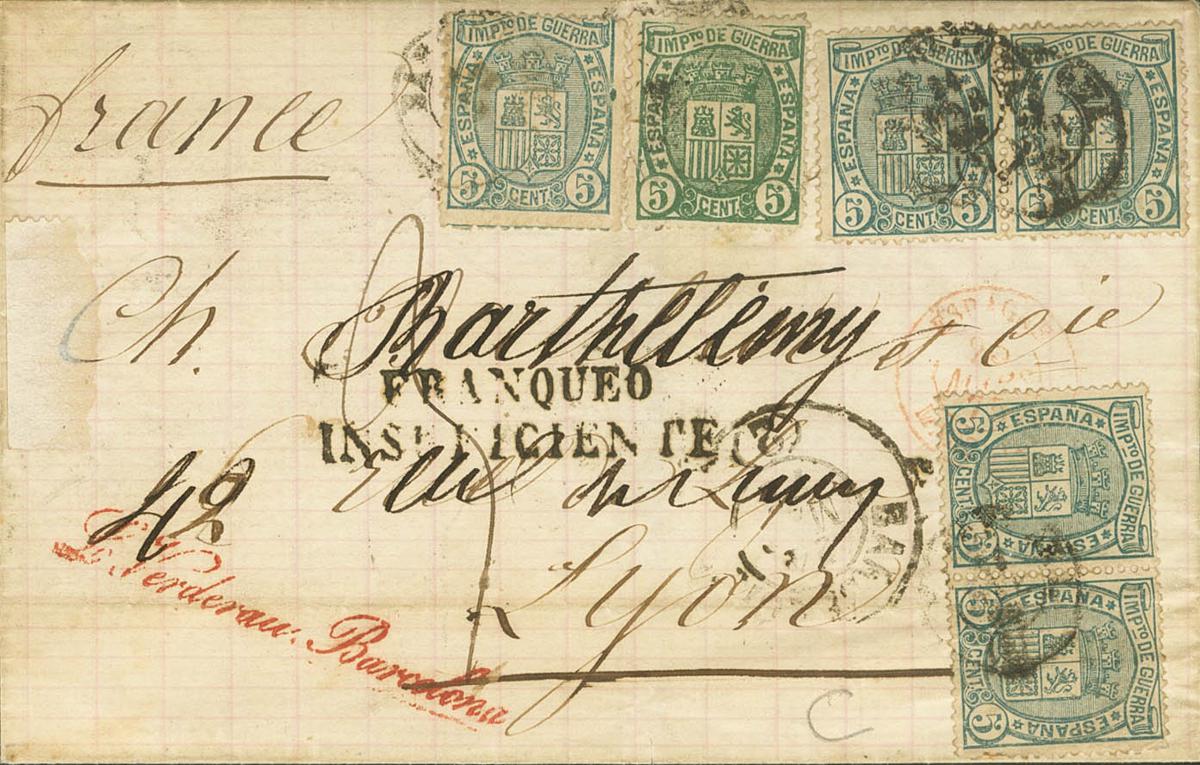 france
IMPTO DE GUERRA
ESPAÑA
ESPAÑA
5 CENT. 5
IMPTO DE GUERRA
ESPAÑA
ESPAÑA
5 CENT. 5
IMPTO DE GUERRA
ESPAÑA
ESPAÑA
5 CENT. 5
IMPTO DE GUERRA
ESPAÑA
ESPAÑA
5 CENT. 5
Ch. Barthélémy et Cie
FRANQUEO
INSUFICIENTE
42 Rue de
Lyon
Verderau. Barcelona
IMPTO DE GUERRA
ESPAÑA
ESPAÑA
5 CENT. 5
IMPTO DE GUERRA
ESPAÑA
ESPAÑA
5 CENT. 5
C